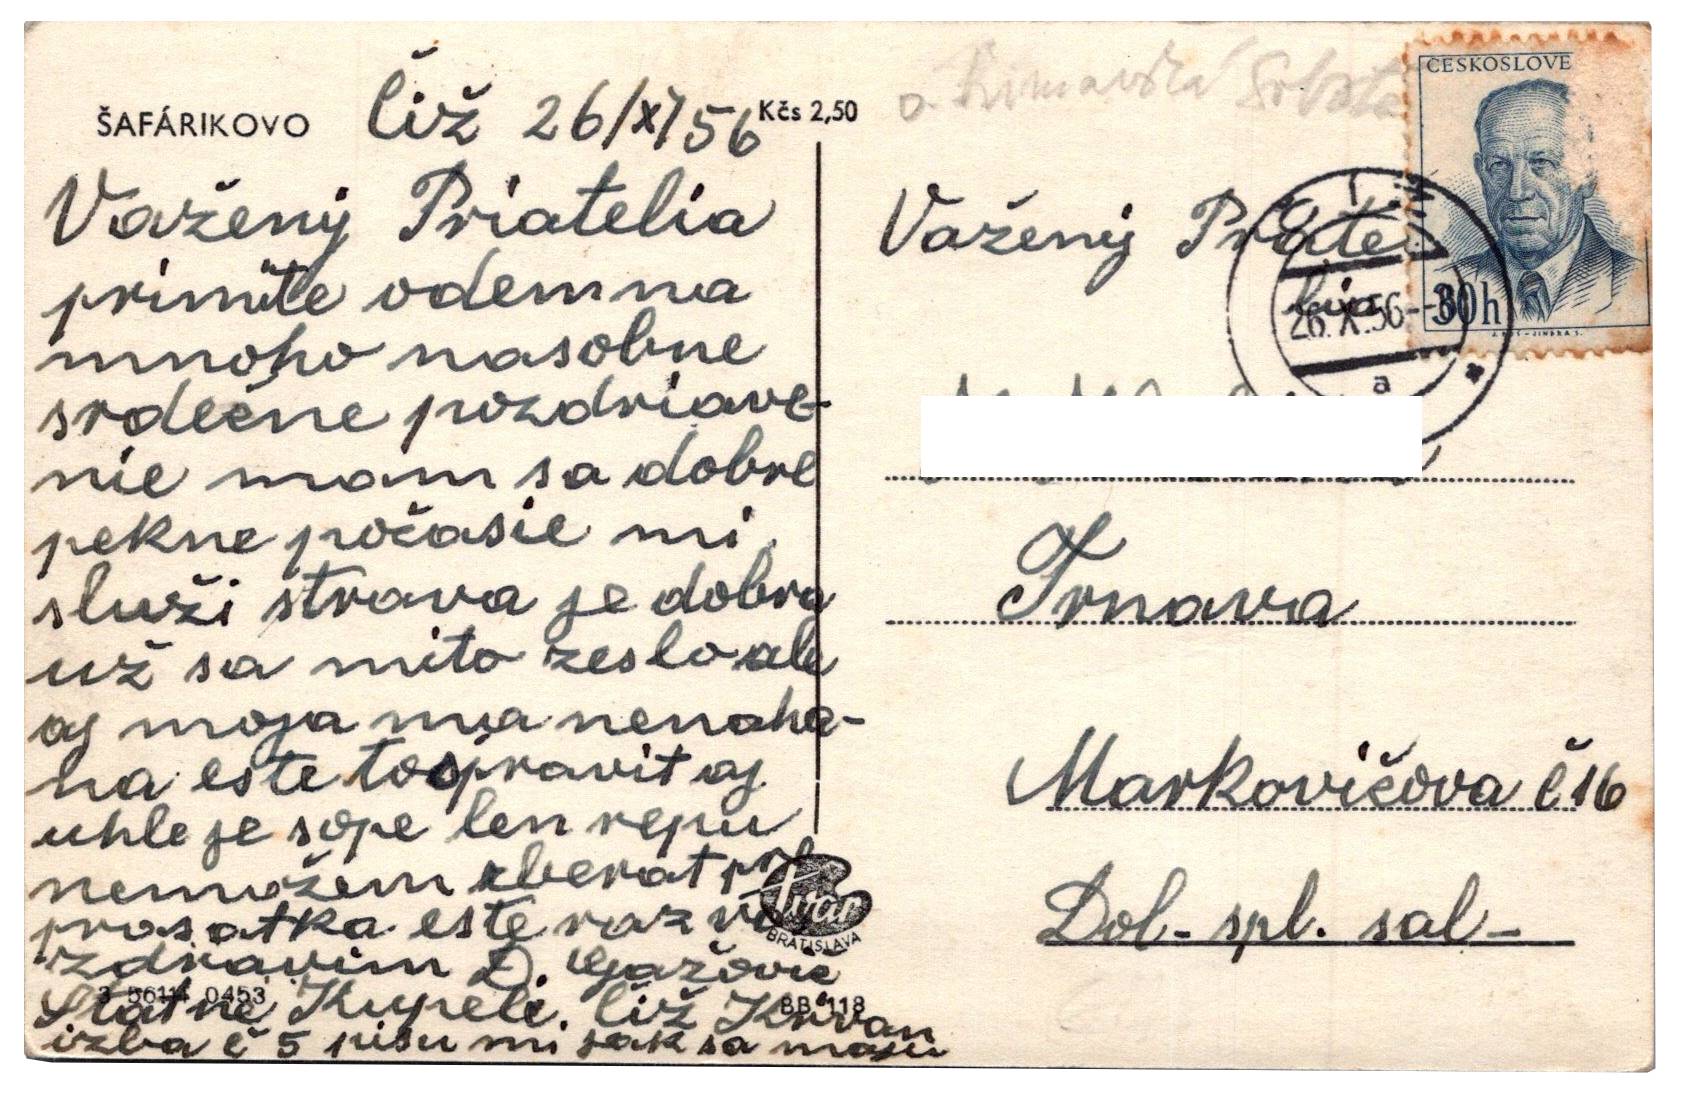 ŠAFÁRIKOVO
Číž 26/X/56
Kčs 2,50
Važený Priatelia
primite odemna
mnoho nasobne
srdečne pozdriave-
nie mam sa dobre
pekne počasie mi
služi strava je dobra
už sa mito zeslo ale
aj moja mia nenaha-
ha este to spravit aj
uhle je sope len repu
nemožem zberat pri
prasatka este raz vas
zdravim D. Gažovic
Statne Kupeli. Číž Kriván
izba č 5 pisu mi jak sa maju
3 56114 0453
BB 118
Tvar
BRATISLAVA
o. Rimavská Sobota
ČESKOSLOVE
30h
26.X.56
a
Važený Priatel
lia
Trnava
Markovičova č 16
Dol- spl. sal-